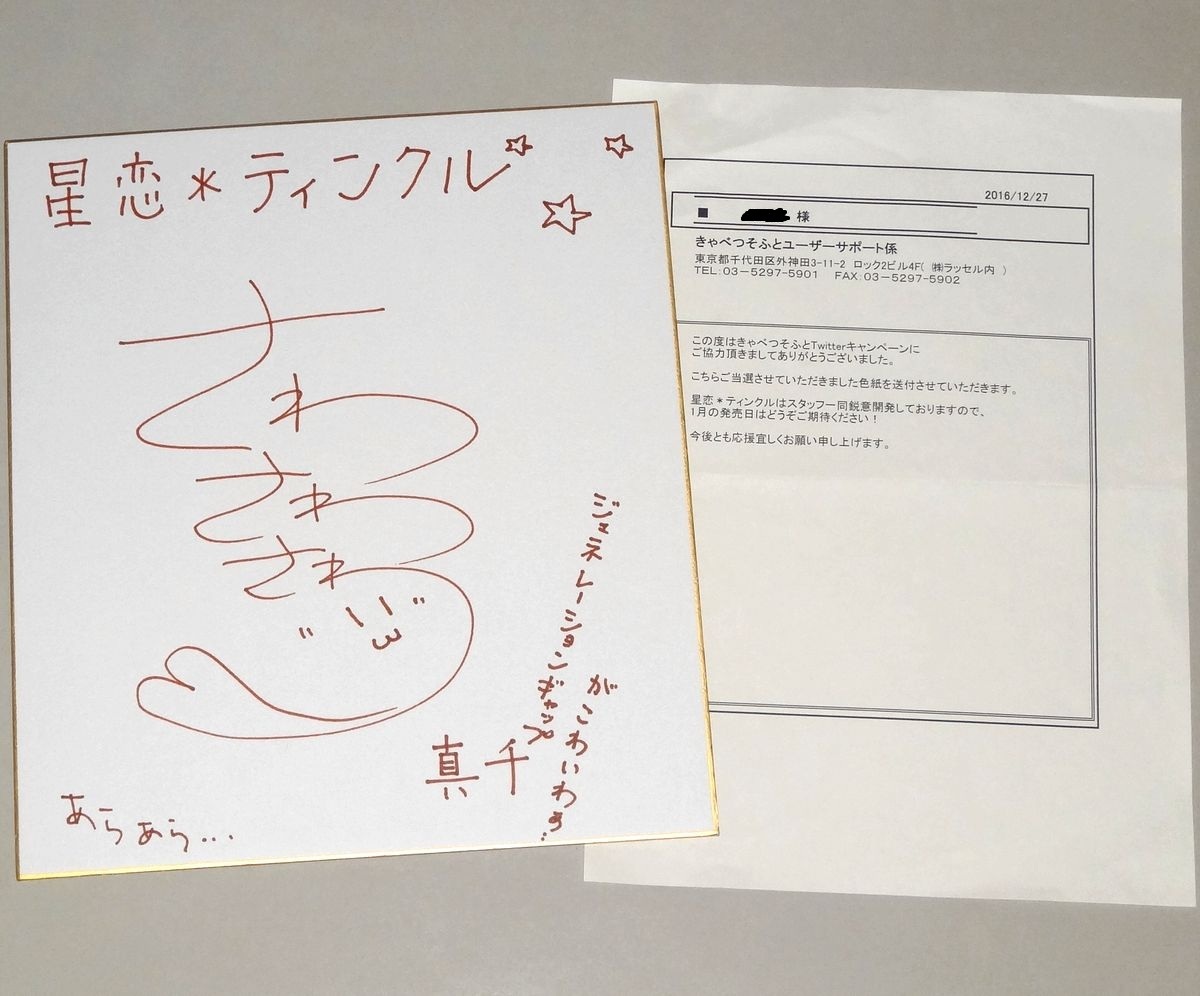 星恋＊ティンクル
さわ
さわ
さわ
ジェネレーションギャップ
がこわいわぁ!
真千
あらあら...
2016/12/27
■ 様
きゃべつそふとユーザーサポート係
東京都千代田区外神田3-11-2 ロック2ビル4F( ㈱ラッセル内 )
TEL:03-5297-5901 FAX:03-5297-5902
この度はきゃべつそふとTwitterキャンペーンに
ご協力頂きましてありがとうございました。
こちらご当選させていただきました色紙を送付させていただきます。
星恋＊ティンクルはスタッフ一同鋭意開発しておりますので、
1月の発売日はどうぞご期待ください！
今後とも応援宜しくお願い申し上げます。